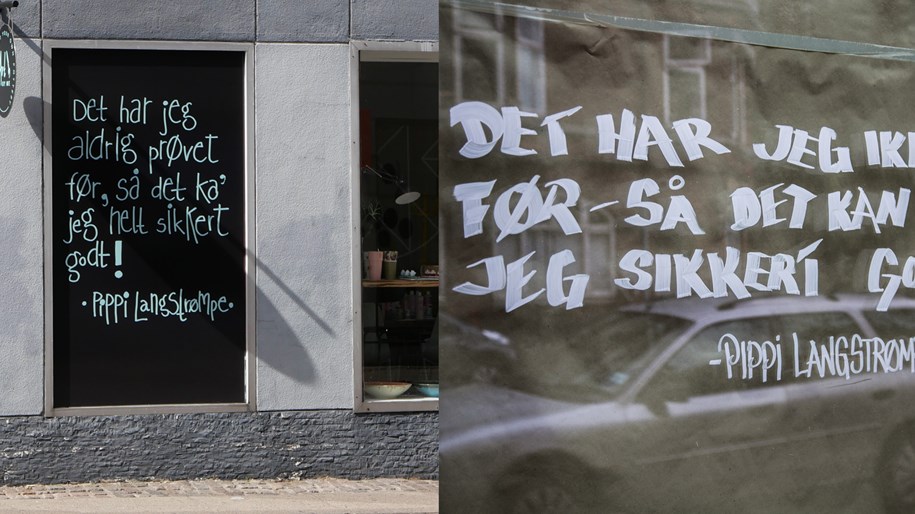 Det har jeg
aldrig prøvet
før, så det ka'
jeg helt sikkert
godt!
· Pippi Langstrømpe ·
DET HAR JEG
FØR – SÅ DET KAN
JEG SIKKERT
-PIPPI LANGSTRØM